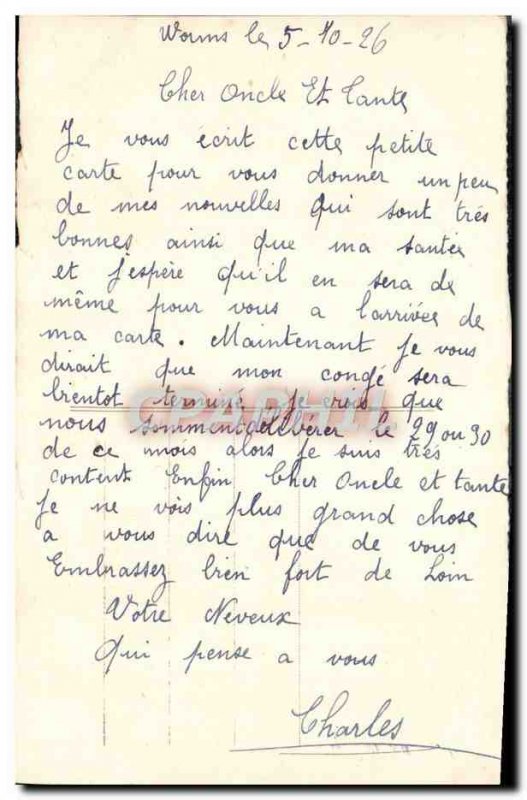 Worms le 5-10-26
Cher Oncle Et Tante
Je vous écrit cette petite
carte pour vous donner un peu
de mes nouvelles qui sont très
bonnes ainsi que ma santée
et j'espère qu'il en sera de
même pour vous a l'arrivée de
ma carte. Maintenant je vous
dirait que mon congé sera
bientot terminé je crois que
nous somment déliberer le 29 ou 30
de ce mois alors je suis très
content Enfin Cher Oncle et tante
je ne vois plus grand chose
a vous dire que de vous
Embrassez bien fort de Loin
Votre Neveux
Qui pense a vous
Charles